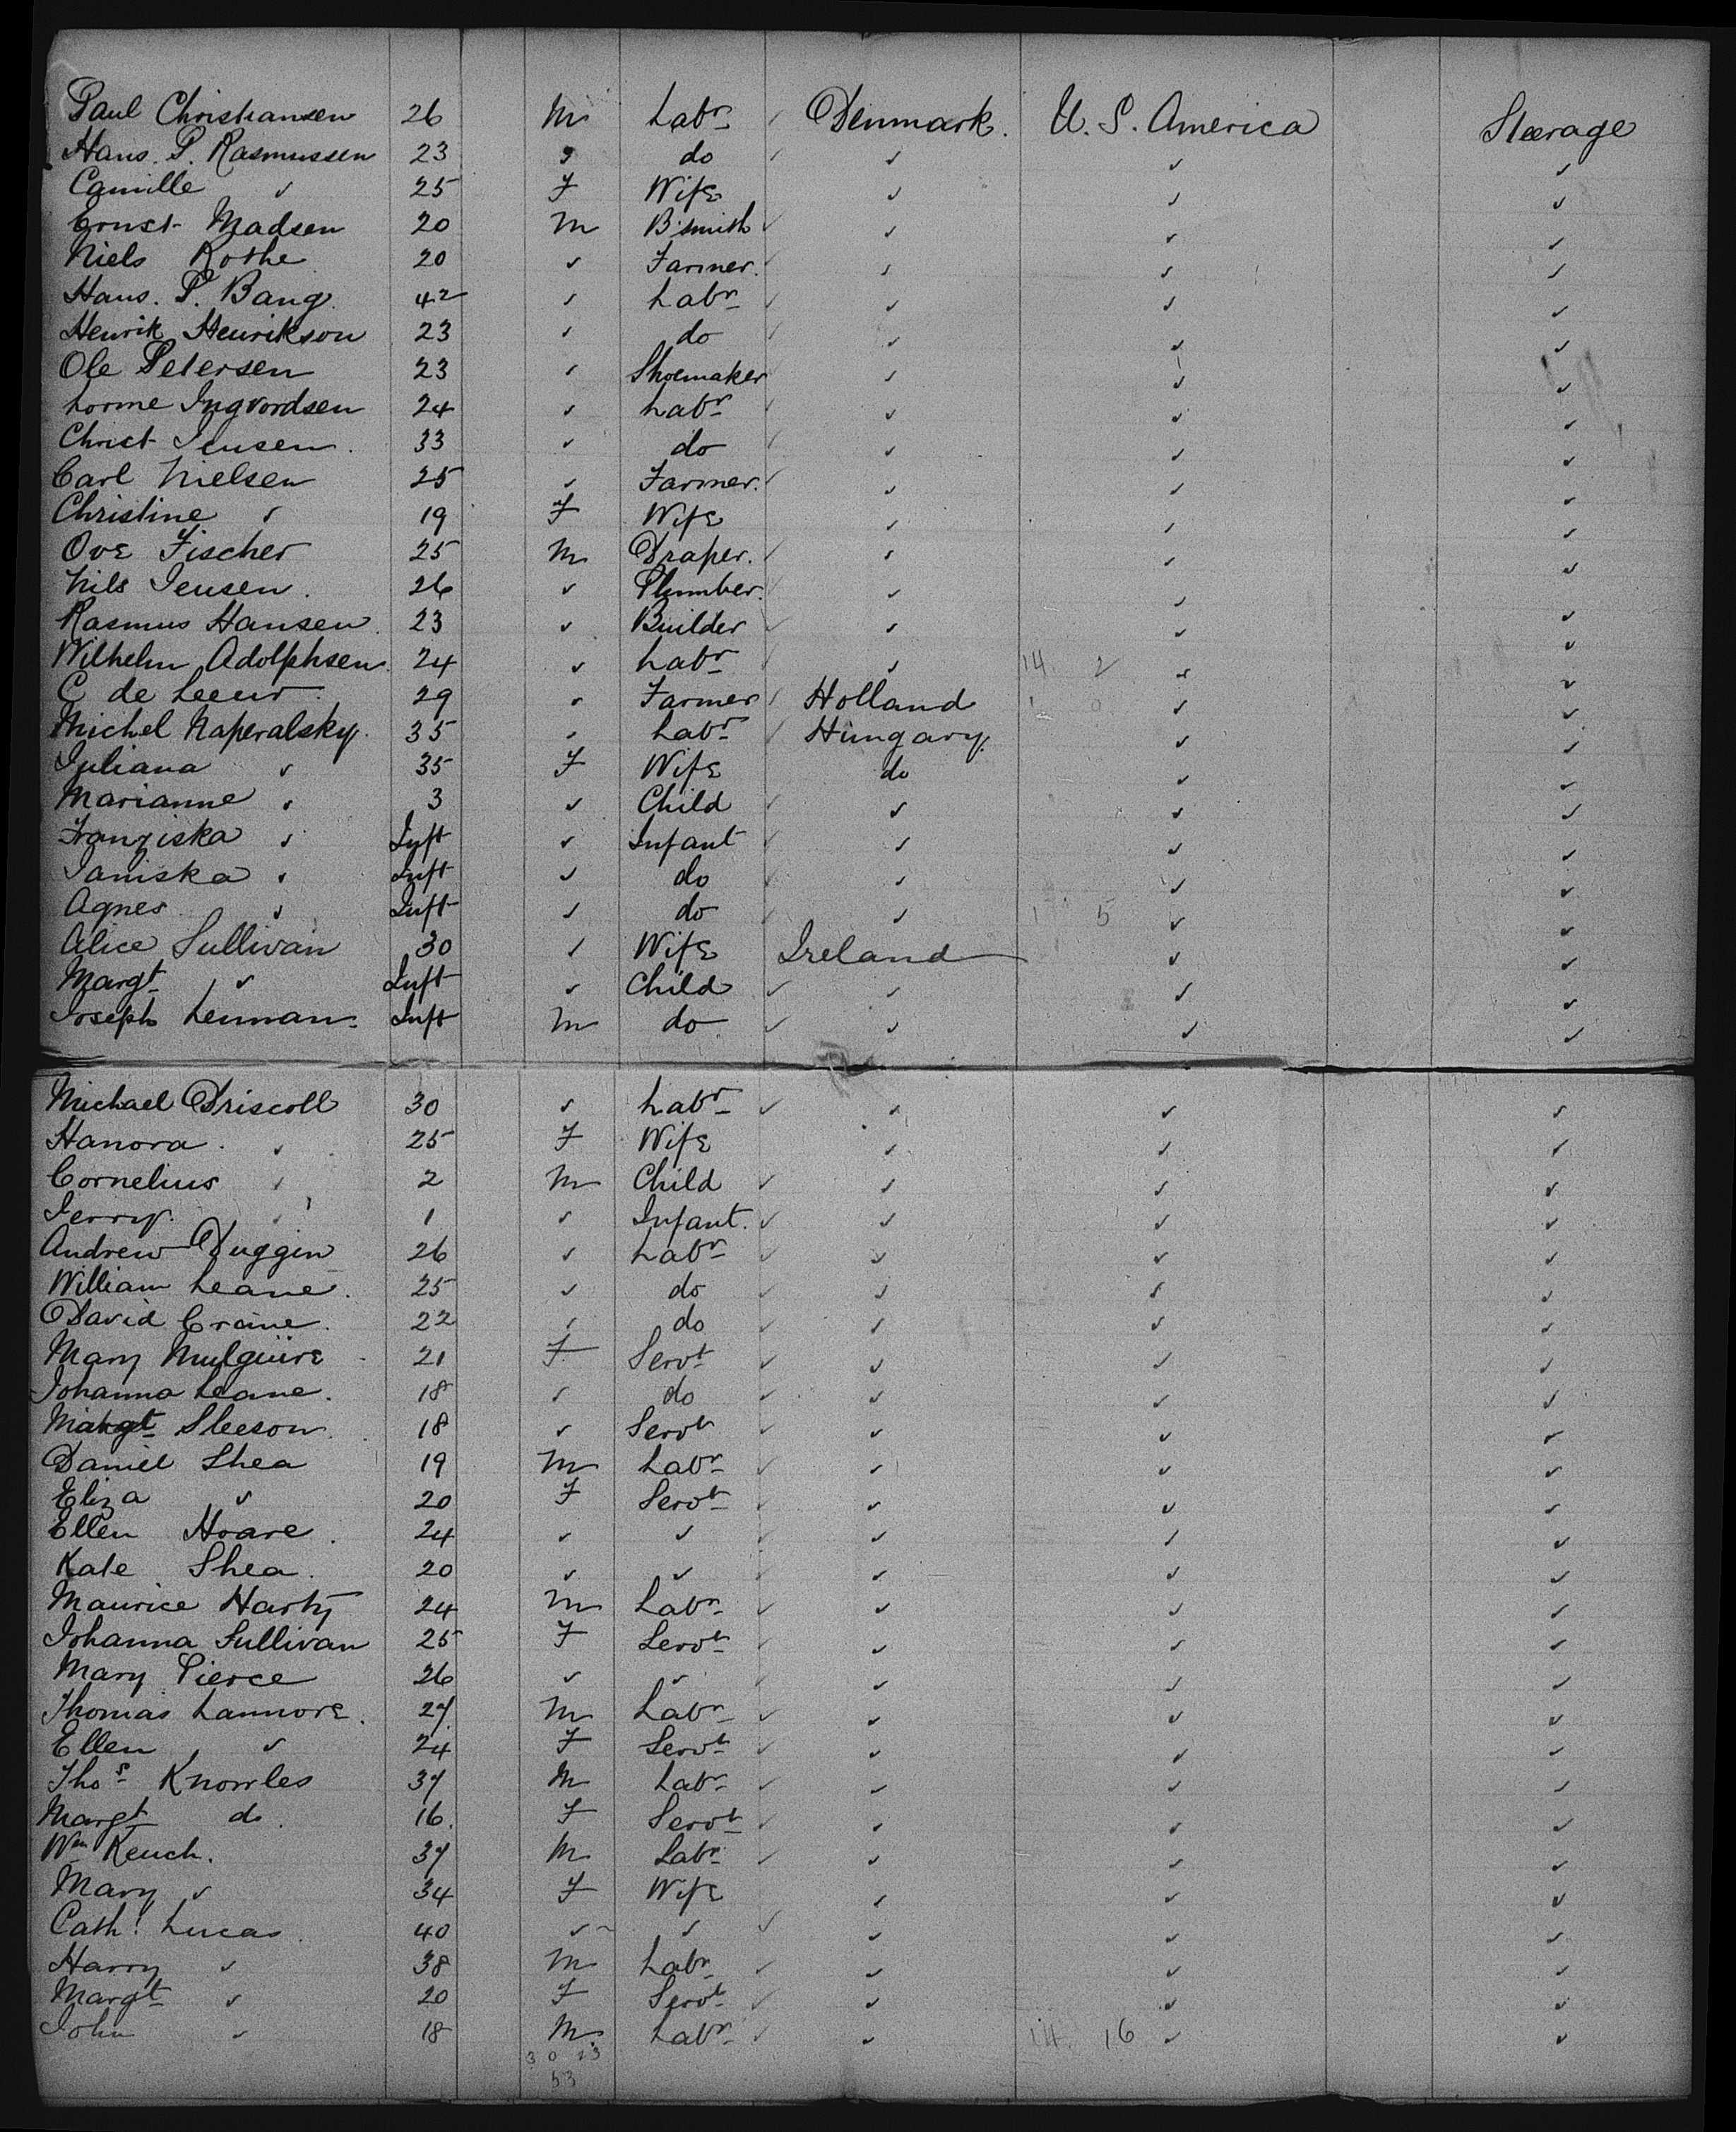 Paul Christiansen 26 M Labr ✓ Denmark. U. S. America Steerage
Hans. P. Rasmussen 23 ✓ do ✓ ✓ ✓ ✓
Camille ✓ 25 F Wife ✓ ✓ ✓
Ernst Madsen 20 M B'smith ✓ ✓ ✓ ✓
Niels Rothe 20 ✓ Farmer. ✓ ✓ ✓ ✓
Hans. P. Bang. 42 ✓ Labr ✓ ✓ ✓ ✓
Henrik Henrikson 23 ✓ do ✓ ✓ ✓ ✓
Ole Petersen 23 ✓ Shoemaker ✓ ✓ ✓
Ingvordsen 24 ✓ Labr ✓ ✓ ✓ ✓
Christ Jensen. 33 ✓ do ✓ ✓ ✓ ✓
Carl Nielsen 25 ✓ Farmer. ✓ ✓ ✓ ✓
Christine ✓ 19 F Wife ✓ ✓ ✓
Ove Fischer 25 M Draper. ✓ ✓ ✓ ✓
Nils Jensen. 26 ✓ Plumber. ✓ ✓ ✓ ✓
Rasmus Hansen. 23 ✓ Builder ✓ ✓ ✓ ✓
Wilhelm Adolphsen 24 ✓ Labr ✓ ✓ 14 2 ✓ ✓
C de Leeuw. 29 ✓ Farmer ✓ Holland 1 0 ✓ ✓
Michel Naperalsky. 35 ✓ Labr ✓ Hungary. ✓ ✓
Juliana ✓ 35 F Wife do ✓ ✓
Marianne ✓ 3 ✓ Child ✓ ✓ ✓ ✓
Franziska ✓ Inft ✓ Infant ✓ ✓ ✓ ✓
Janiska ✓ Inft ✓ do ✓ ✓ ✓ ✓
Agnes ✓ Inft ✓ do ✓ ✓ 1 5 ✓ ✓
Alice Sullivan 30 ✓ Wife Ireland ✓ ✓
Margt ✓ Inft ✓ Child ✓ ✓ ✓ ✓
Joseph Lennan. Inft M do ✓ ✓ ✓ ✓
Michael Driscoll 30 ✓ Labr ✓ ✓ ✓ ✓
Hanora. ✓ 25 F Wife ✓ ✓ ✓
Cornelius ✓ 2 M Child ✓ ✓ ✓ ✓
Jerry. ✓ 1 ✓ Infant. ✓ ✓ ✓ ✓
Andrew Duggin 26 ✓ Labr ✓ ✓ ✓ ✓
William Leane. 25 ✓ do ✓ ✓ ✓ ✓
David Craine. 22 ✓ do ✓ ✓ ✓ ✓
Mary Mulguire 21 F Servt ✓ ✓ ✓ ✓
Johanna Leane. 18 ✓ do ✓ ✓ ✓ ✓
Margt Sleeson. 18 ✓ Servt ✓ ✓ ✓ ✓
Daniel Shea 19 M Labr ✓ ✓ ✓ ✓
Eliza ✓ 20 F Servt ✓ ✓ ✓ ✓
Ellen Hoare. 24 ✓ ✓ ✓ ✓ ✓ ✓
Kate Shea. 20 ✓ ✓ ✓ ✓ ✓ ✓
Maurice Harty 24 M Labr ✓ ✓ ✓ ✓
Johanna Sullivan 25 F Servt ✓ ✓ ✓ ✓
Mary Pierce 26 ✓ ✓ ✓ ✓ ✓ ✓
Thomas Lannore. 27. M Labr ✓ ✓ ✓ ✓
Ellen ✓ 24 F Servt ✓ ✓ ✓ ✓
Thos Knowles 37 M Labr ✓ ✓ ✓ ✓
Margt do. 16. F Servt ✓ ✓ ✓ ✓
Wm Keuch. 37 M Labr ✓ ✓ ✓ ✓
Mary ✓ 34 F Wife ✓ ✓ ✓
Cath. Lucas. 40 ✓ ✓ ✓ ✓ ✓ ✓
Harry ✓ 38 M Labr ✓ ✓ ✓ ✓
Margt ✓ 20 F Servt ✓ ✓ ✓ ✓
John ✓ 18 M. Labr ✓ ✓ 14. 16 ✓ ✓
30 23
53